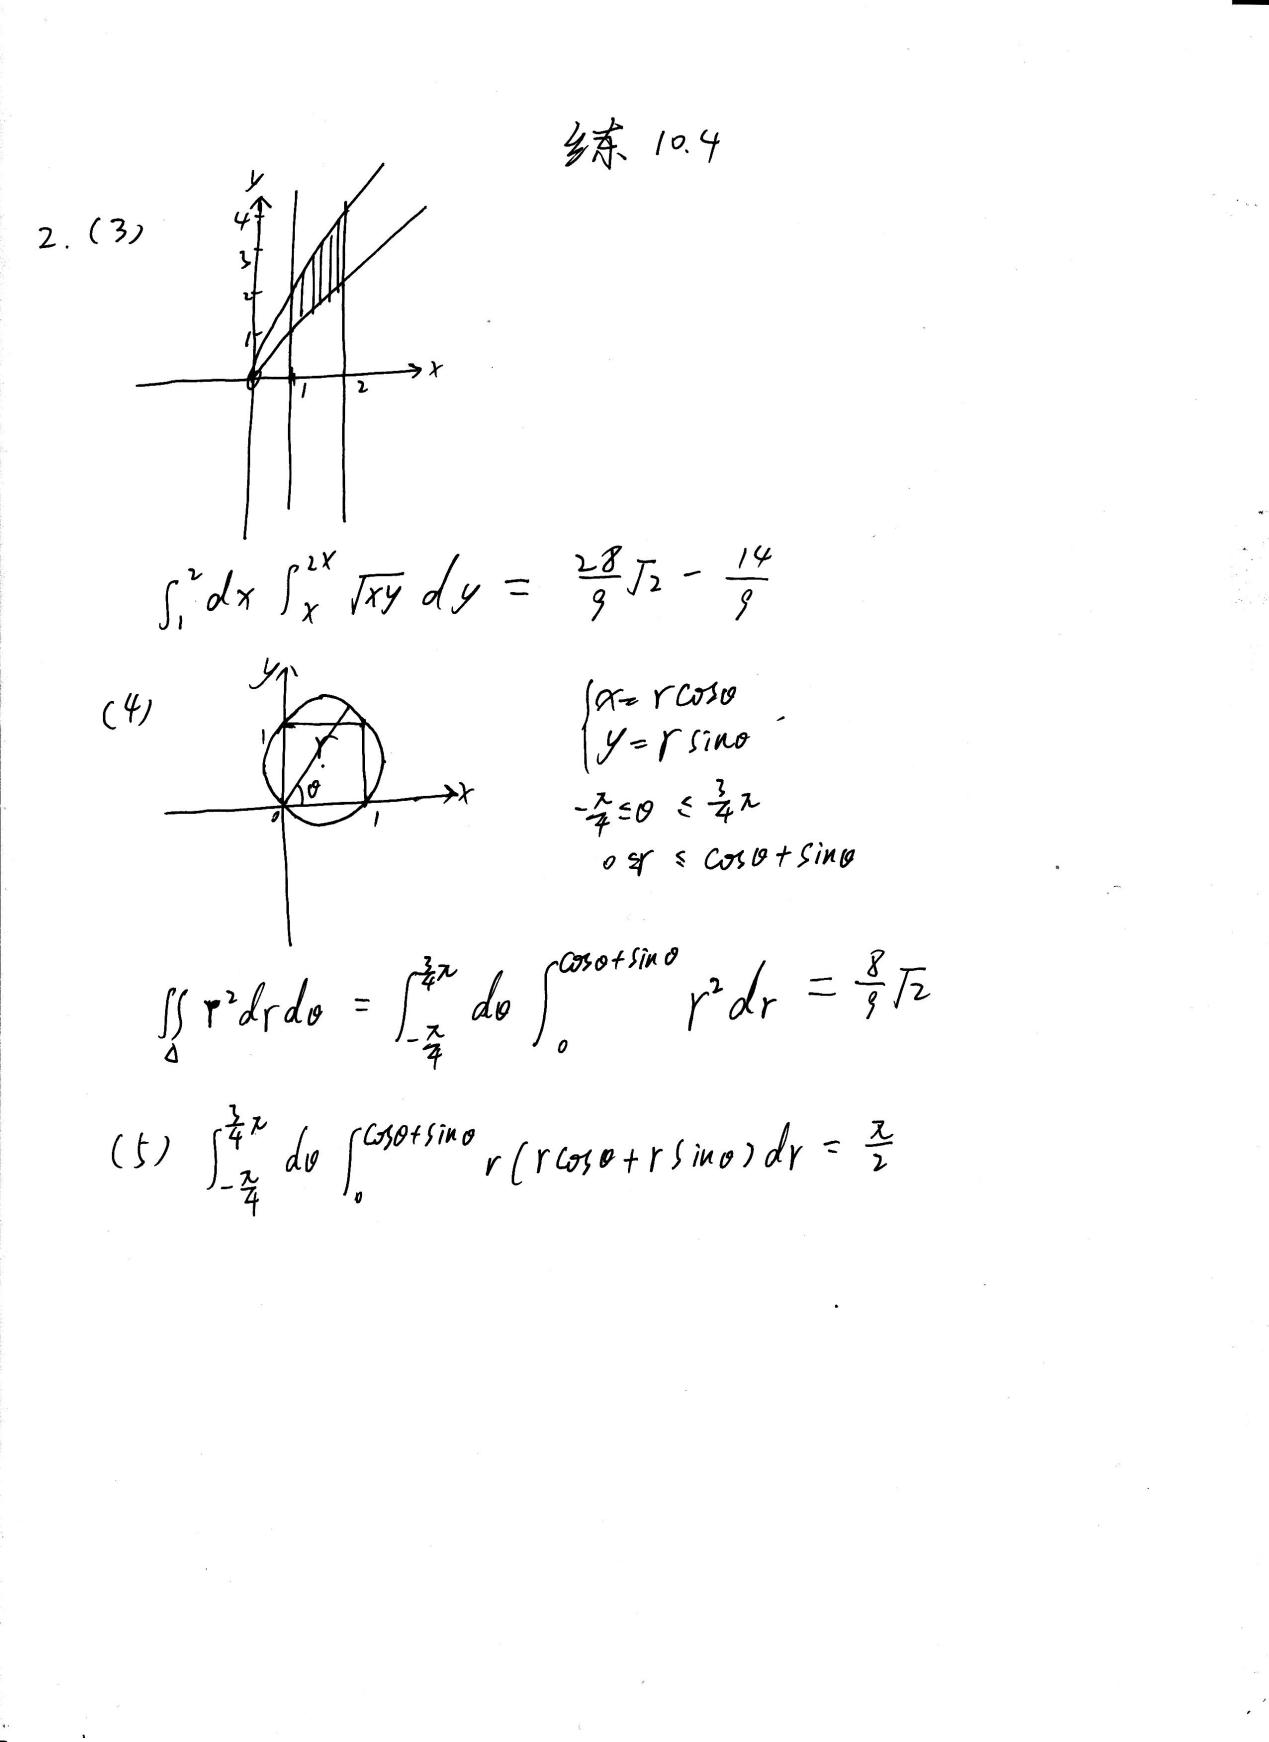 练 10.4
2. (3)
y
4
3
2
1
0
1
2
x
∫₁² dx ∫ₓ²ˣ √xy dy = 28/9 √2 - 14/9
(4)
y
1
r
θ
0
1
x
{x = r cosθ
y = r sinθ
-π/4 ≤ θ ≤ 3/4 π
0 ≤ r ≤ cosθ + sinθ
∬_Δ r² dr dθ = ∫_{-π/4}^{3/4 π} dθ ∫_0^{cosθ+sinθ} r² dr = 8/9 √2
(5) ∫_{-π/4}^{3/4 π} dθ ∫_0^{cosθ+sinθ} r(r cosθ + r sinθ) dr = π/2